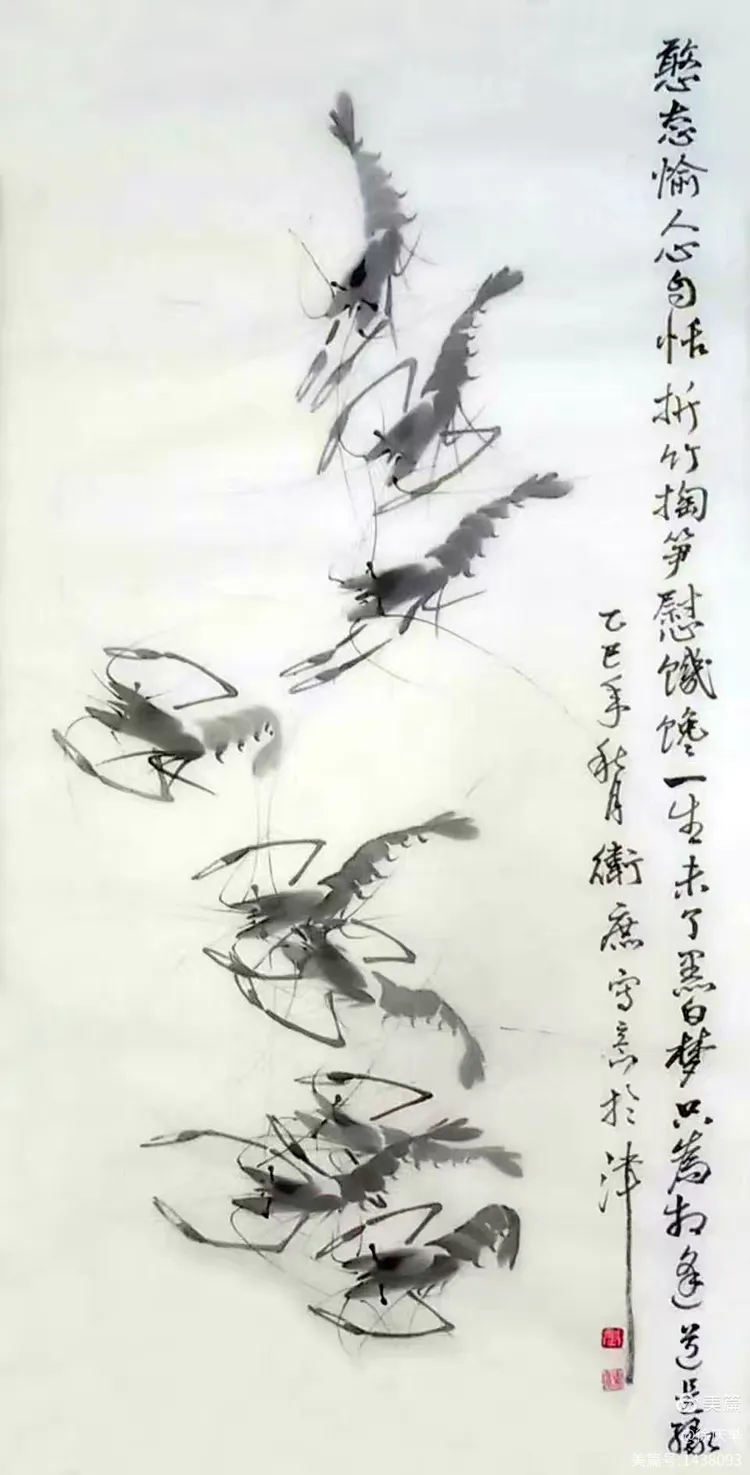 憨态愉人心自恬折竹掏笋慰饿馋一生未了黑白梦只为相逢道是缘
乙巳年秋月衛庶写意於津
美篇
美篇号:1438093